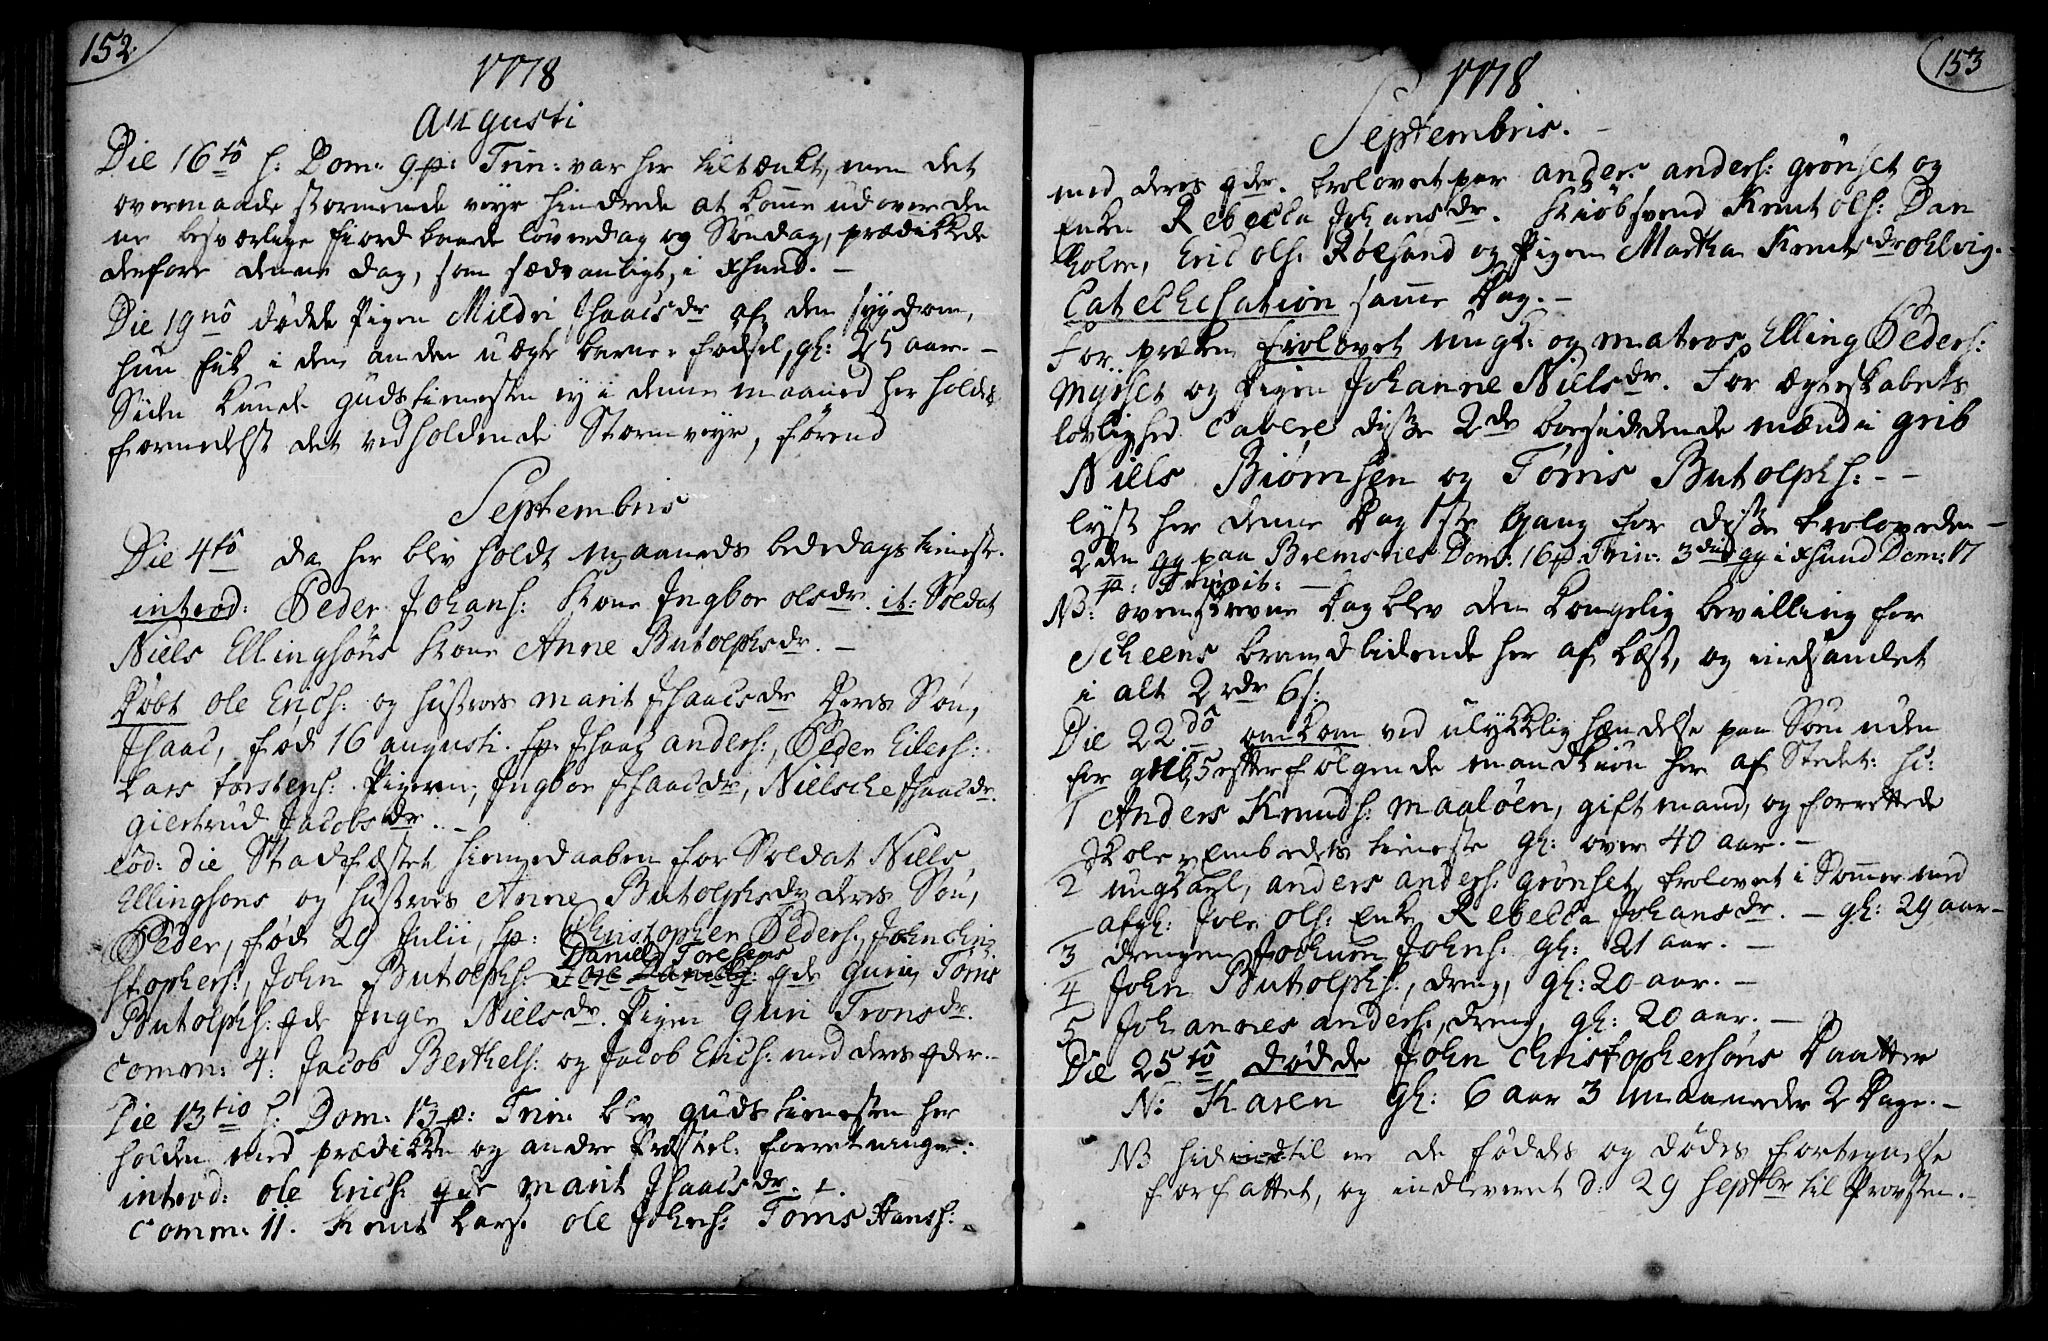 152.
1778
Augusti
Die 16tô h: Dom: 9 p: Trin: var her tiltænkt, men det
overmaade stormende veyr hindrede at komme ud over den
ne besværlige fiord baade löverdag og Söndag, prædikkede
derfore denne dag, som sædvanligt, i Xsund. –
Die 19nô dödde Pigen Mildri Jsaacsdr af den sygdom,
hun fik i den anden uægte barne-födsel, gl: 25 aar. –
Siden kunde gudstienesten ey i denne maaned her holdes
formedelst det vedholdende Stormveyr, förend
Septembris
Die 4tô da her blev holdt maaneds bededags tieneste.
introd: Peder Johans: Kone Ingbor olsdr. it: Soldat
Niels Ellingsöns Kone Anne Butolphsdr. –
Döbt ole Erichs: og hustroes marit Jsaacsdr deres Sön,
Jsaac, föd 16 augusti. fp. Jsaag anders:, Peder Eilers:
Lars torstens: Pigerne, Ingbor Jsaacsdr, Nielsche Jsaacsdr.
giertrud Jacobsdr. –
eod: die Stadfæstet hiemmedaaben for Soldat Niels
Ellingsöns og hustroes Anne Butolphsdr deres Sön,
Peder, föd 29 Julii, fp: Christopher Peders:, John Chri
stophers:, John Butolphs: Daniel Toresens qde Guri, Tönis
Butolphs: qde Inger Nielsdr. Pigen Guri Tronsdr.
comm: 4. Jacob Berthels: og Jacob Erichs: med deres qder. –
Die 13tio h: Dom: 13 p: Trin: blev gudstienesten her
holden med prædikken og andre præstel: forretninger.
introd: ole Erichs: qde marit Jsaacsdr. –
Comm: 11. Knut Lars: ole Johns: Tönis Hans:
153
1778
Septembris. –
med deres qder. trolovet par anders anders: grönset og
Enken Rebecka Johansdr. Kiöbsvend Knut ols: Dan
holm, Eric ols: Rölsand og Pigen Martha Knutsdr ohlvig. –
Catechesation samme Dag. –
For præken trolovet ungk: og matros Elling Peders:
Myrset og Pigen Johanne Nielsdr. For Ægteskabets
lovlighed Cavere disse 2de boesiddende mænd i grib
Niels Biörnsen og Tönis Butolphs: – –
lyst her denne Dag 1ste gang for disse trolovede –
2den gg paa Bremsnes Dom: 16 p: Trin: 3die gg i Xsund Dom: 17
p: Trinit: –
NB: ovenskrevne Dag blev den kongelig bevilling for
Scheens brandlidende her af læst, og indsamlet
i alt 2 rdr 6 s:
Die 22dô omkom ved ulykkelig hændelse paa Söen uden
for grib, 5 efterfölgende mandkiön her af Stedet: sc:
1 Anders Knuds: Maalöen, gift mand, og forrettede
Skole-Embedets tieneste gl: over 40 aar. –
2 ungkarl, anders anders: grönset, trolovet i Sommer med
afg: Joen ols: Enke Rebecka Johansdr. – gl: 29 aar –
3 drengen Jochum Johns: gl: 21 aar. –
4 John Butolphs:, dreng, gl: 20 aar. –
5 Johannes anders:, dreng, gl: 20 aar. –
Die 25tô dödde John Christophersöns Daatter
N: Karen gl: 6 aar 3 maaneder 2 Dage. –
NB hidindtil ere de föddes og dödes fortegnelse
forfattet, og indleveret d: 29 septbr til Provsten. –